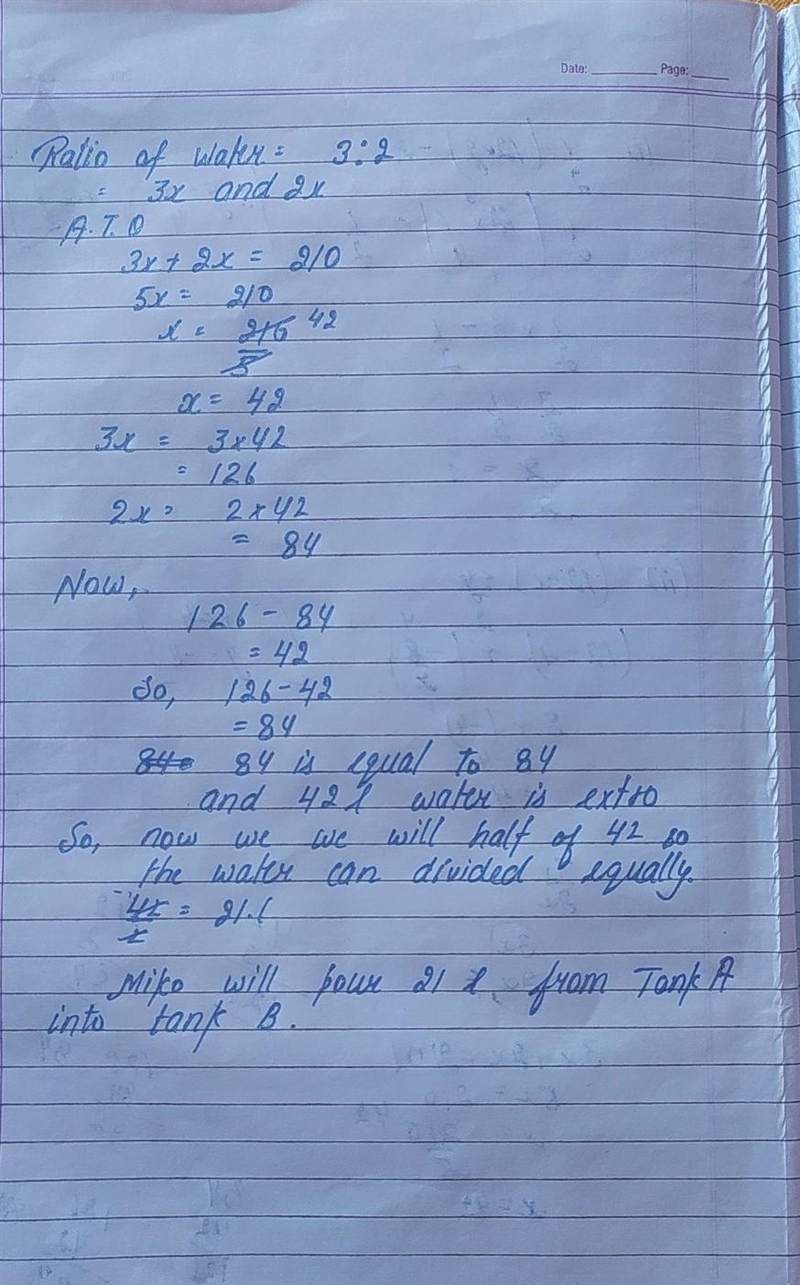 Date: ________ Page: _____
Ratio of water = 3:2
= 3x and 2x
A.T.Q
3x + 2x = 210
5x = 210
x = 210 42
5
x = 42
3x = 3×42
= 126
2x = 2×42
= 84
Now,
126 - 84
= 42
So, 126 - 42
= 84
84 = 84 is equal to 84
and 42 l water is extra
So, now we we will half of 42 so
the water can divided equally.
42 = 21 l
2
Miko will pour 21 l from Tank A
into tank B.